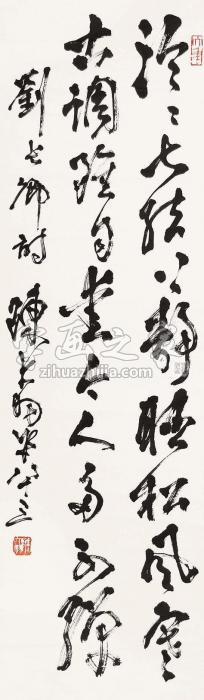 泠〻七絃上靜聽松風寒
古調雖自愛今人多不彈
劉長卿詩 陳大羽 年八十三
字画之家
zihuazhijia.com